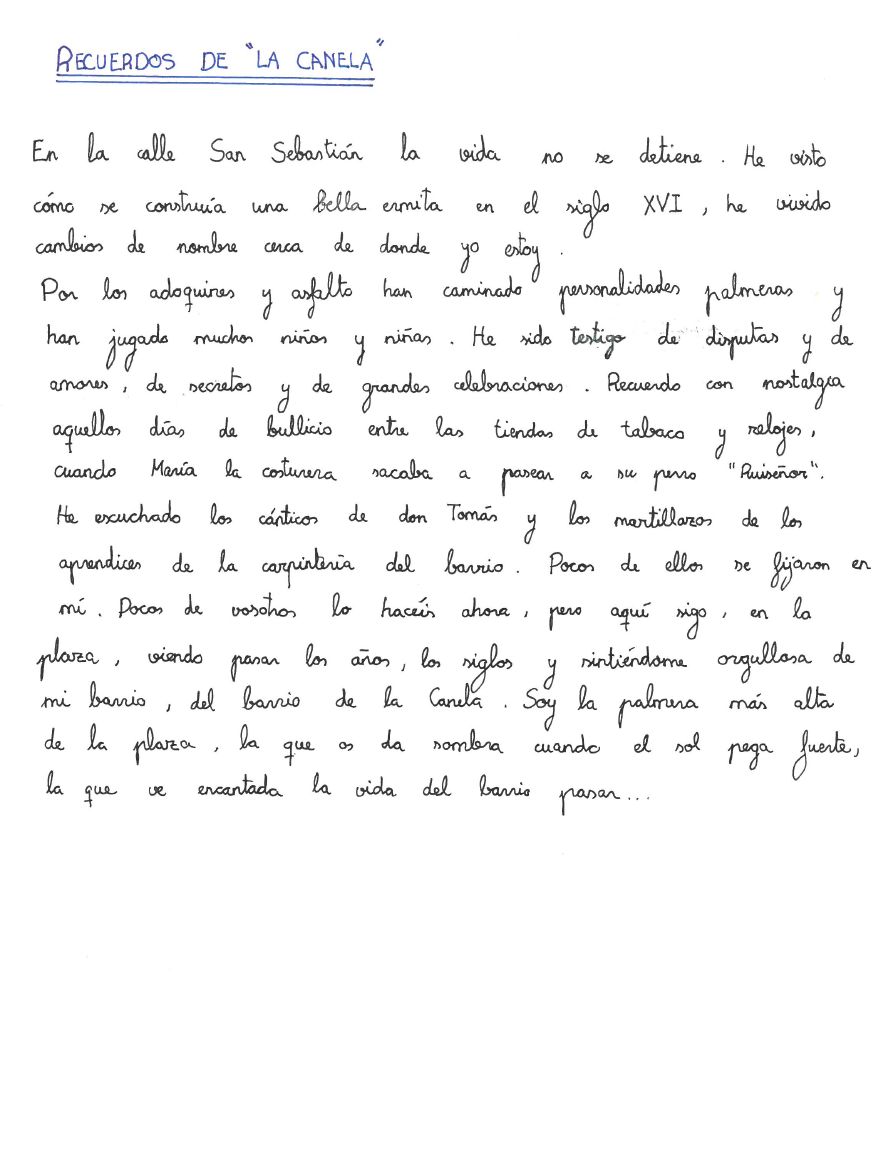 RECUERDOS DE "LA CANELA"
En la calle San Sebastián la vida no se detiene. He visto
cómo se construía una bella ermita en el siglo XVI, he vivido
cambios de nombre cerca de donde yo estoy.
Por los adoquines y asfalto han caminado personalidades palmeras y
han jugado muchos niños y niñas. He sido testigo de disputas y de
amores, de secretos y de grandes celebraciones. Recuerdo con nostalgia
aquellos días de bullicio entre las tiendas de tabaco y relojes,
cuando María la costurera sacaba a pasear a su perro "Ruiseñor".
He escuchado los cánticos de don Tomás y los martillazos de los
aprendices de la carpintería del barrio. Pocos de ellos se fijaron en
mí. Pocos de vosotros lo hacéis ahora, pero aquí sigo, en la
plaza, viendo pasar los años, los siglos y sintiéndome orgullosa de
mi barrio, del barrio de la Canela. Soy la palmera más alta
de la plaza, la que os da sombra cuando el sol pega fuerte,
la que ve encantada la vida del barrio pasar...